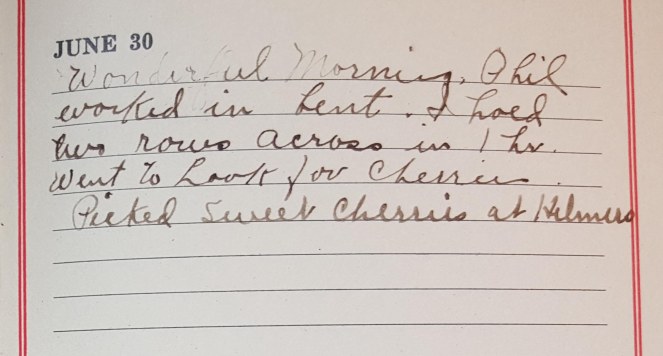 JUNE 30
Wonderful Morning. Phil
worked in tent. I hoed
two rows across in 1 hr.
Went to Look for Cherries.
Picked Sweet Cherries at Hilmers